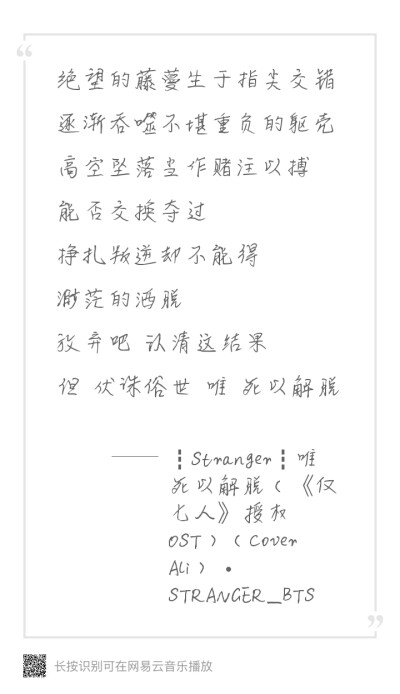 绝望的藤蔓生于指尖交错
逐渐吞噬不堪重负的躯壳
高空坠落当作赌注以搏
能否交换夺过
挣扎叛逆却不能得
渺茫的洒脱
放弃吧 认清这结果
但 伏诛俗世 唯 死以解脱
—— ┇Stranger┇唯
死以解脱（《仅
七人》授权
OST）（Cover
Ali）•
STRANGER_BTS
长按识别可在网易云音乐播放